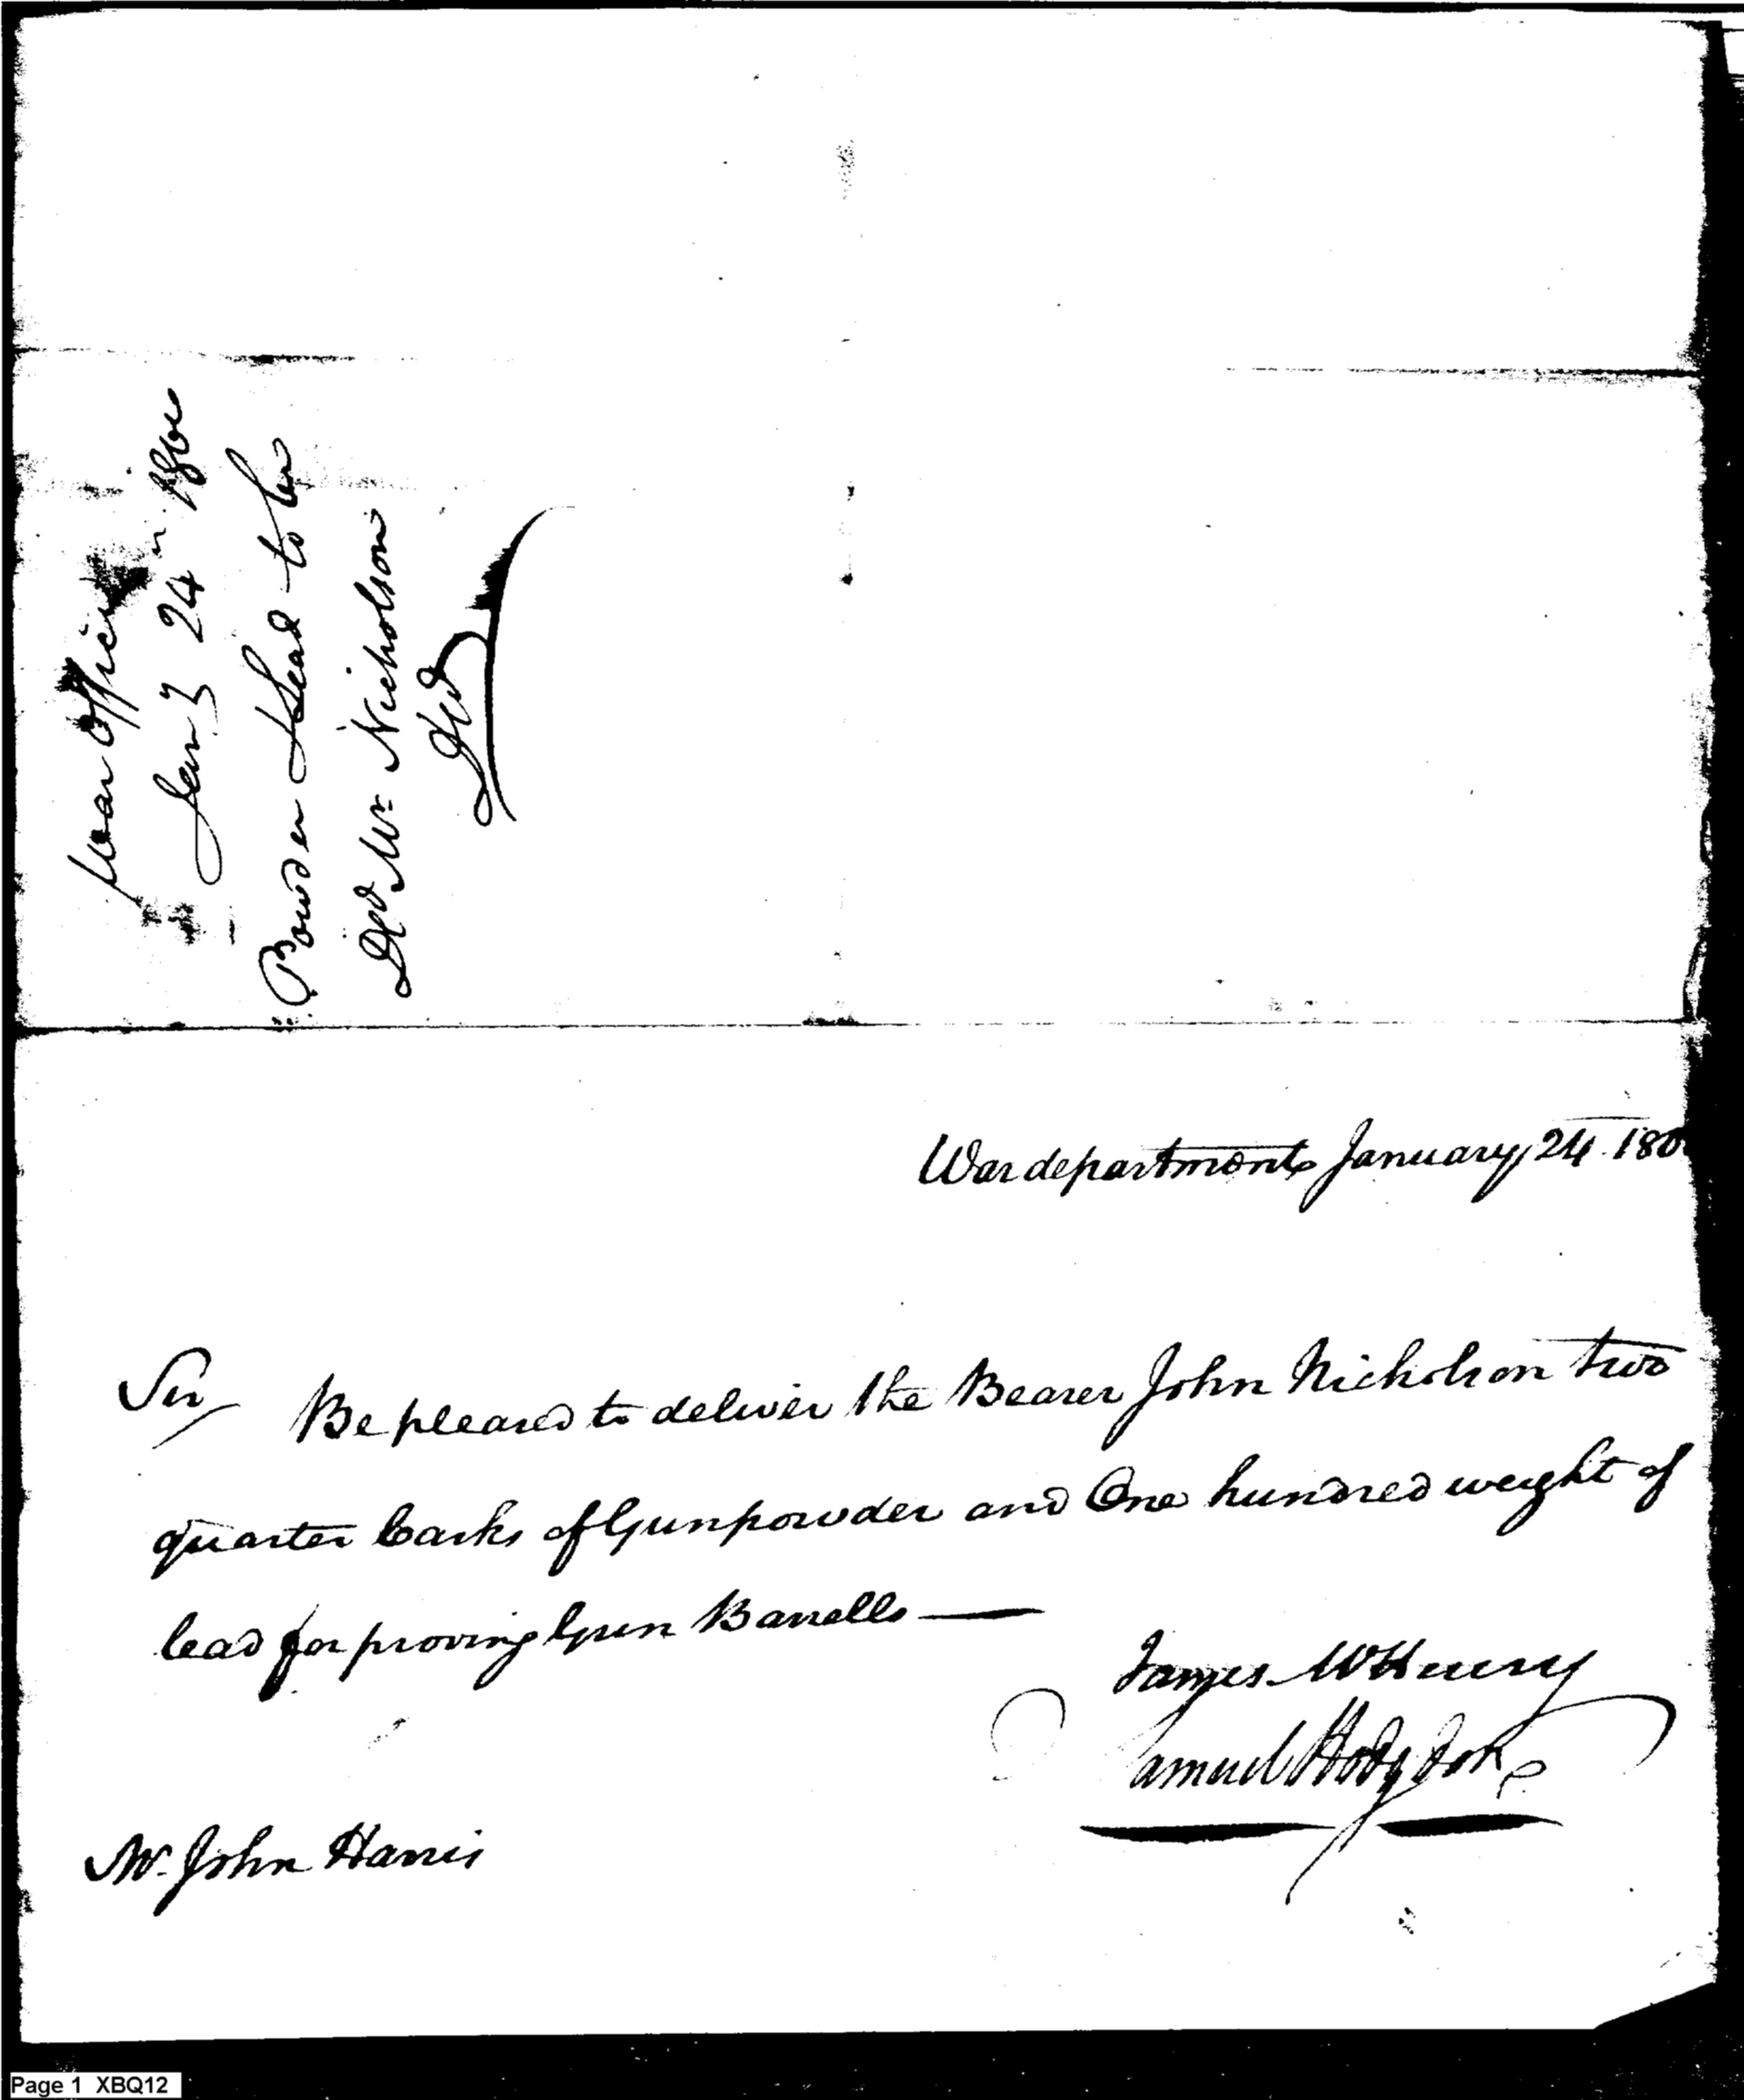 War Office
Jany 24th 1800
Powder & Lead to be
dd Mr Nicholson
dd
War department January 24 180
Sir Be pleased to deliver the Bearer John Nicholson two
quarter Casks of Gunpowder and One hundred weight of
lead for proving Gun Barrells —
James McHenry
Samuel Hodgdon
Mr. John Harris
Page 1 XBQ12